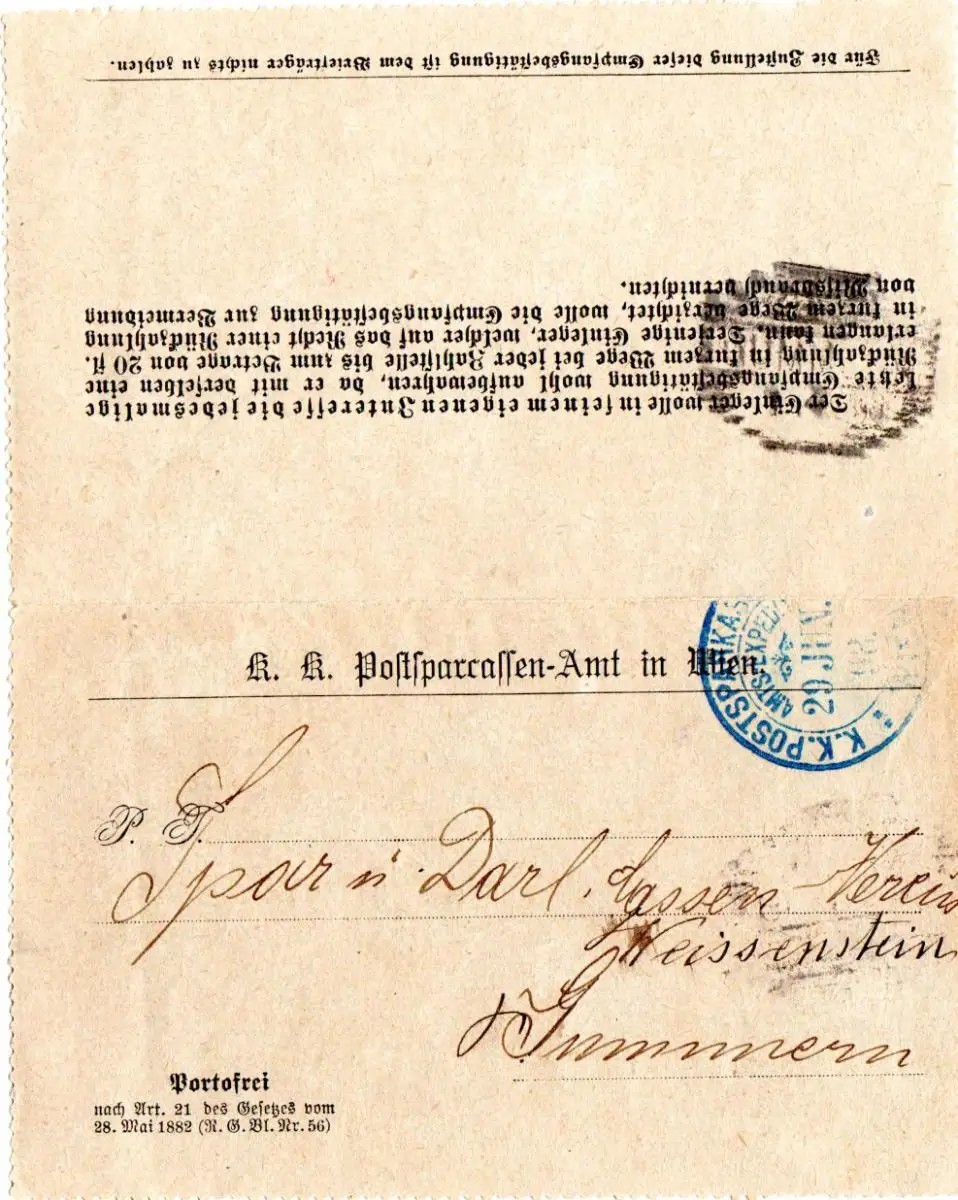 Für die Zustellung dieser Empfangsbestätigung ist dem Briefträger nichts zu zahlen.
Der Einleger wolle in seinem eigenen Interesse die jedesmalige
letzte Empfangsbestätigung wohl aufbewahren, da er mit derselben eine
Rückzahlung in kurzem Wege bei jeder Zahlstelle bis zum Betrage von 20 fl.
erlangen kann. Derjenige Einleger, welcher auf das Recht einer Rückzahlung
in kurzem Wege verzichtet, wolle die Empfangsbestätigung zur Vermeidung
von Missbrauch vernichten.
K. K. Postsparcassen-Amt in Wien.
K.K. POSTSPARKAS
AMTS EXPED
29 JUN.
P. T.
Spar u Darl. Cassen-Verein
Weissenstein
Gummern
Portofrei
nach Art. 21 des Gesetzes vom
28. Mai 1882 (R. G. Bl. Nr. 56)